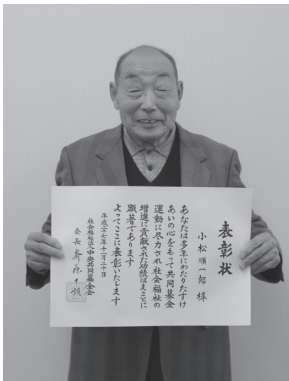 表彰状
小松順一郎 様
あなたは多年にわたりたすけ
あいの心をもって共同募金
運動に尽力され社会福祉の
増進に貢献された功績はまことに
顕著であります
よってここに表彰いたします
平成二十七年十一月二十日
社会福祉法人中央共同募金会
会長